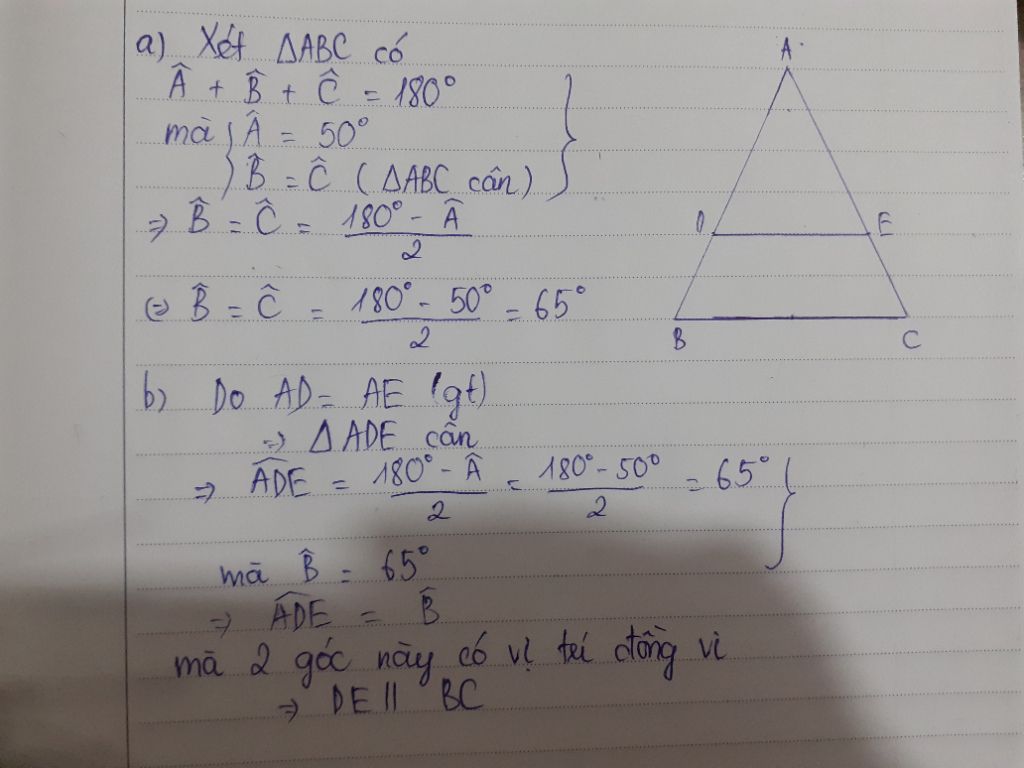 a) Xét ΔABC có
Â + B̂ + Ĉ = 180°
mà { Â = 50°
B̂ = Ĉ (ΔABC cân) }
=> B̂ = Ĉ = (180° - Â)/2
(=) B̂ = Ĉ = (180° - 50°)/2 = 65°
b) Do AD = AE (gt)
=> ΔADE cân
=> \widehat{ADE} = (180° - Â)/2 = (180° - 50°)/2 = 65° }
mà B̂ = 65°
=> \widehat{ADE} = B̂
mà 2 góc này có vị trí đồng vì
=> DE || BC
A
D
E
B
C